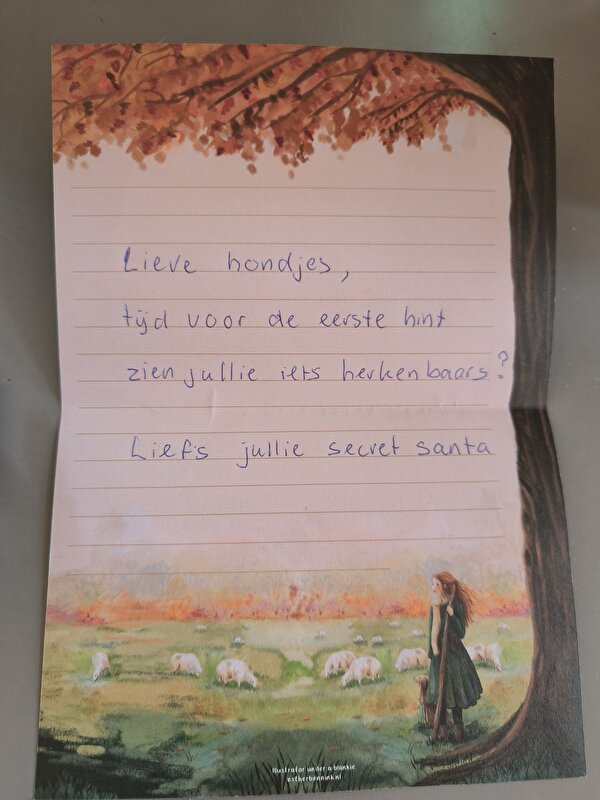 Lieve hondjes,
tijd voor de eerste hint
zien jullie iets herkenbaars?
Liefs jullie secret santa
Illustrator under a blankie
estherbennink.nl